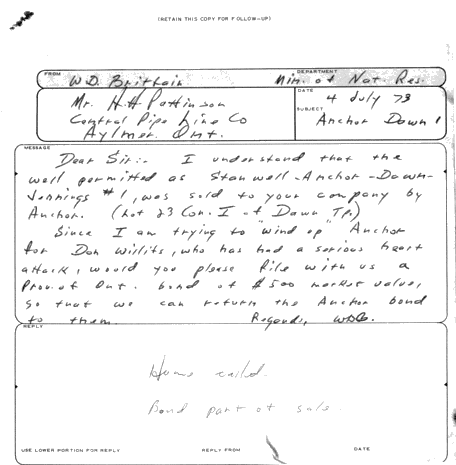 (RETAIN THIS COPY FOR FOLLOW-UP)
FROM W.D. Brittain
DEPARTMENT Min. of Nat. Res.
Mr. H.H. Pattinson
Central Pipe Line Co
Aylmer Ont.
DATE 4 July 73
SUBJECT Anchor Dawn 1
MESSAGE
Dear Sir:- I understand that the
well permitted as Stanwell-Anchor-Dawn-
Jennings #1, was sold to your company by
Anchor. (Lot 23 Con. I of Dawn Tp.)
Since I am trying to "wind up" Anchor
for Don Willits, who has had a serious heart
attack, would you please file with us a
Prov. of Ont. bond of $500 market value,
so that we can return the Anchor bond
to them. Regards, WDB.
REPLY
called.
Bond part of sale.
USE LOWER PORTION FOR REPLY REPLY FROM DATE